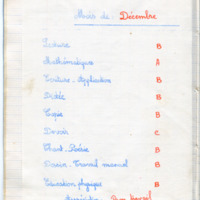 Mois de : Décembre
Lecture B
Mathématiques A
Ecriture - Application B
Dictée B
Copie B
Dessin C
Chant - Poésie B
Dessin - Travail manuel B
Education physique B